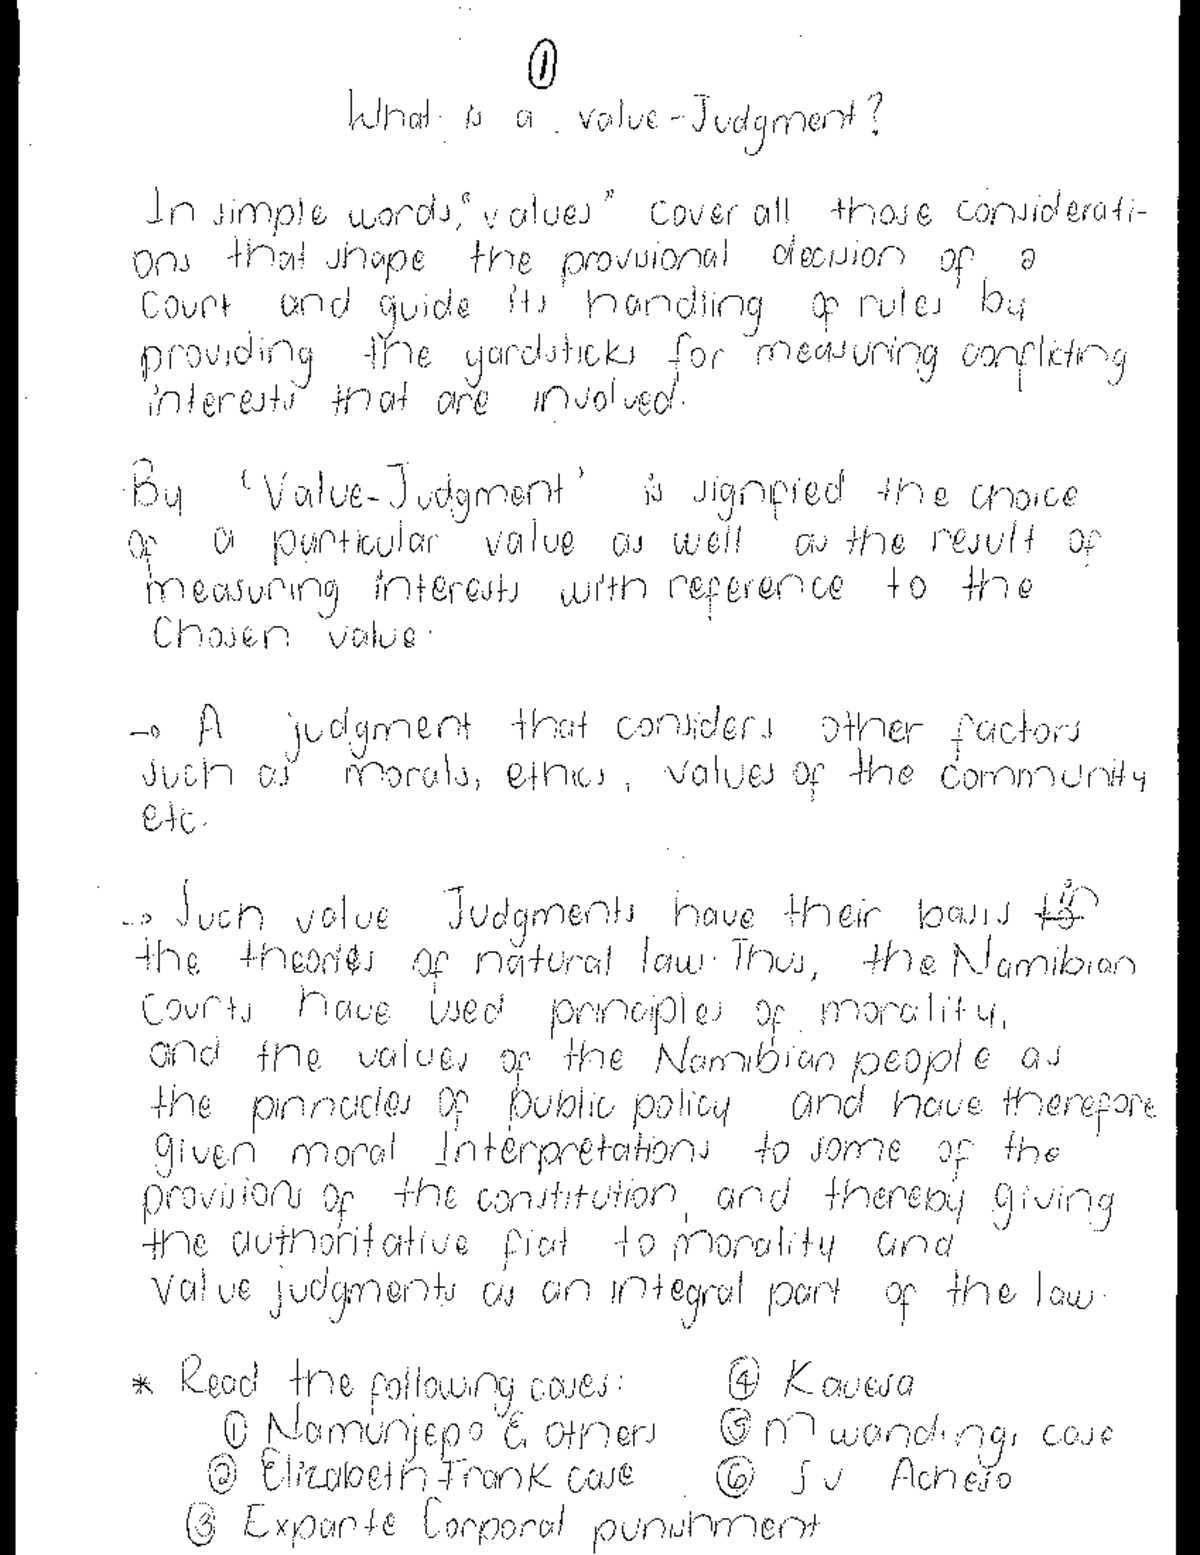 ①
What is a value-Judgment?
In simple words, "values" cover all those considerati-
ons that shape the provisional decision of a
Court and guide its handling of rules by
providing the yardsticks for measuring conflicting
interests that are involved.
By 'Value-Judgment' is signified the choice
of a particular value as well as the result of
measuring interests with reference to the
Chosen value.
→ A judgment that considers other factors
such as morals, ethics, values of the community
etc.
→ Such value Judgments have their basis in
the theories of natural law. Thus, the Namibian
Courts have used principles of morality,
and the values of the Namibian people as
the pinnacles of public policy and have therefore
given moral Interpretations to some of the
provisions of the constitution, and thereby giving
the authoritative fiat to morality and
value judgments as an integral part of the law.
* Read the following cases:
① Namunjepo & others
② Elizabeth Frank case
③ Exparte Corporal punishment
④ Kauesa
⑤ Mwandingi case
⑥ S v Acheso